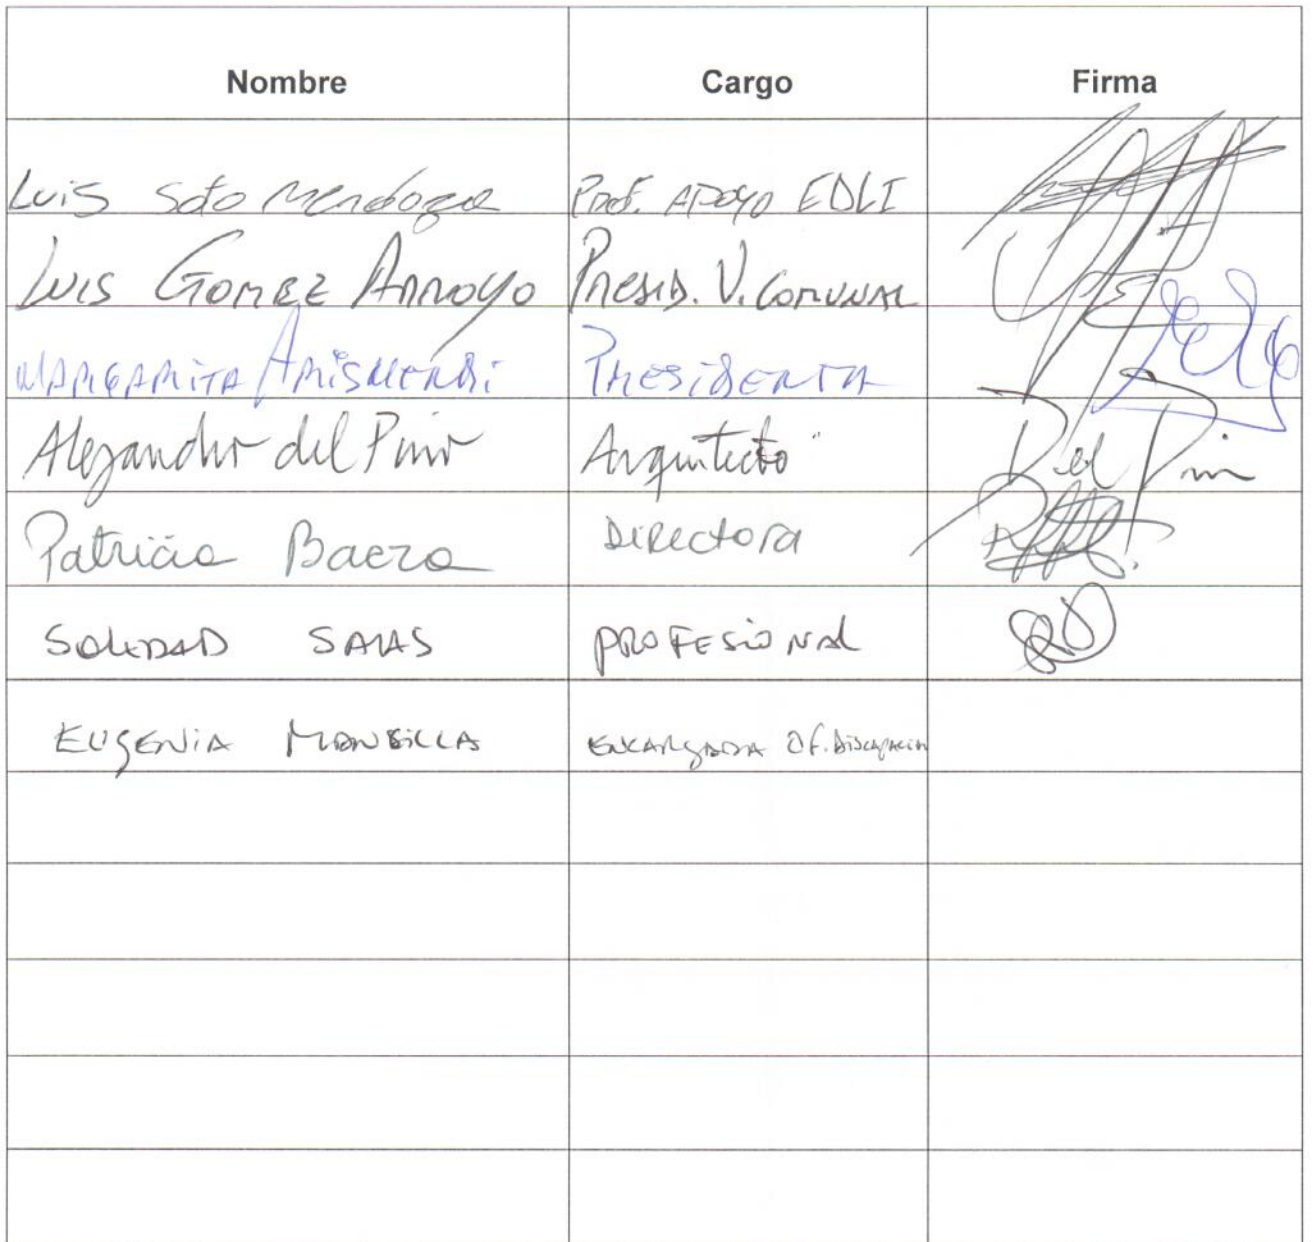 Nombre Cargo Firma
Luis Soto Mendoza Prof. APOYO EDLI
Luis GOMEZ ARROYO Presid. V. COMUNAL
MARGARITA ARISMENDI PRESIDENTA
Alejandro del Pino Arquitecto Del Pino
Patricia Baeza Directora
SOLEDAD SALAS PROFESIONAL
EUGENIA MANSILLA ENCARGADA OF. DISCAPACID